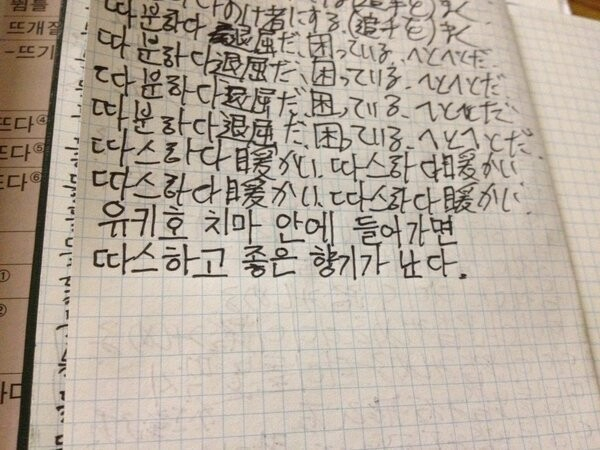 뜀틀
뜨개질
-뜨기
뜨다④
뜨다⑤
뜨다⑥
①
②
따분하다 のけ者にする.(追手を)まく
따분하다 退屈だ、困っている、へとへとだ.
따분하다 退屈だ、困っている、へとへとだ.
따분하다 退屈だ、困っている、へとへとだ.
따스하다 暖かい. 따스하다 暖かい.
따스하다 暖かい. 따스하다 暖かい.
유키호 치마 안에 들어가면
따스하고 좋은 향기가 난다.